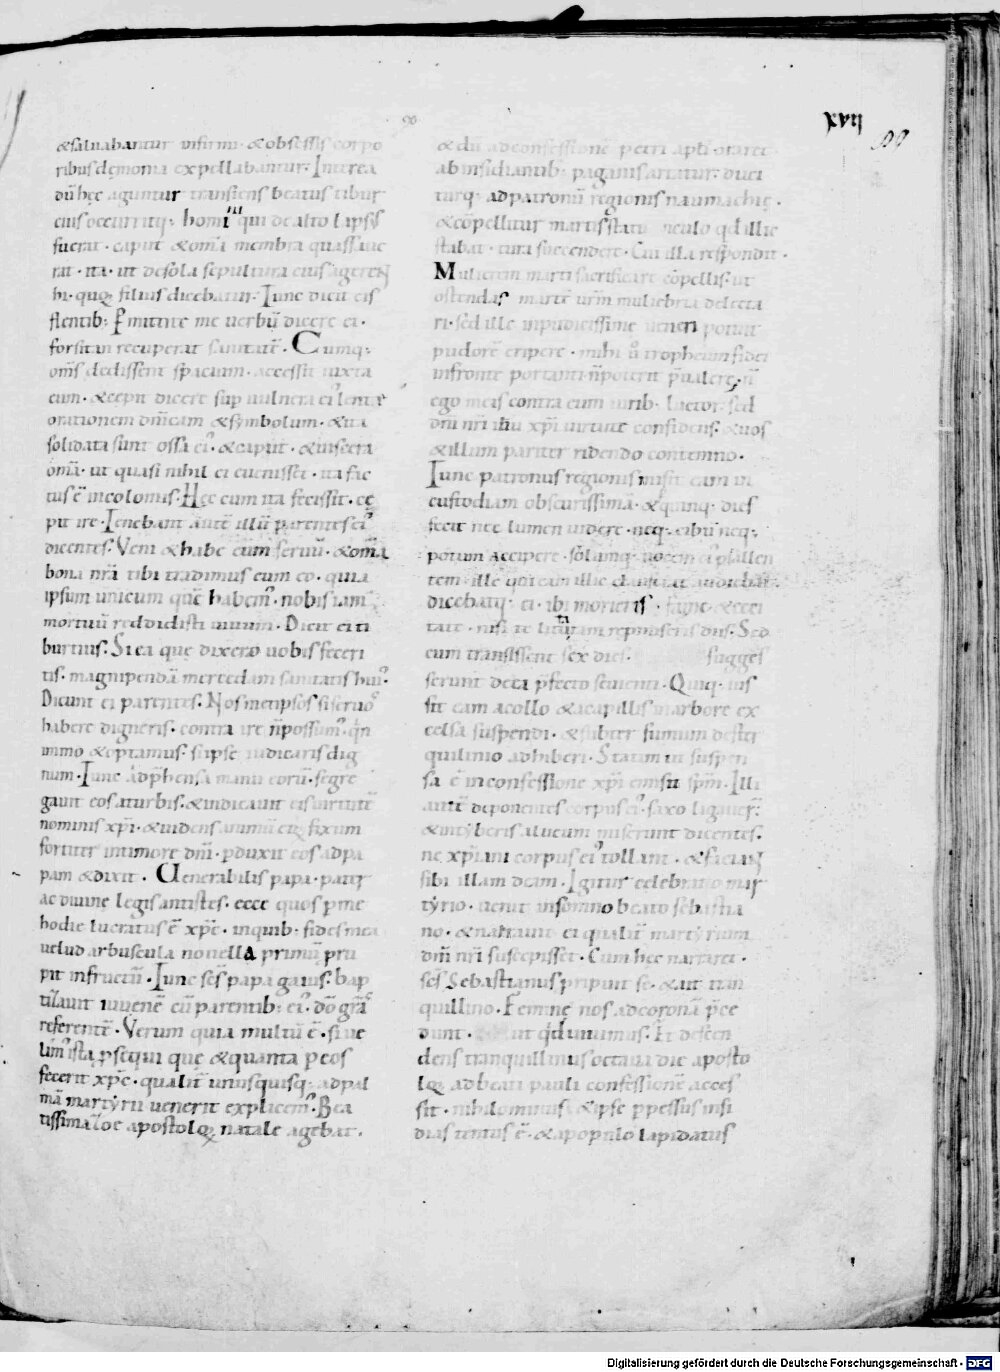 xvij
99
&saluabantur infirmi · &obsessis corpo
ribus demonia expellabantur. Interea
dū hęc aguntur transiens beatus tibur
cius occurrit homini qui de alto lapsus
fuerat · caput & omīa membra quassaue
rat · ita · ut de sola sepultura eius ageret
hi · quoꝝ filius dicebatur. Tunc dicit eis
flentib; Pmittite me uerbū dicere ei ·
forsitan recuperat sanitatē. Cumq;
om̄s dedissent spacium · accessit iuxta
eum · & cepit dicere sup uulnera ei᾽ lente
orationem dn̄icam & symbolum · & ita
solidata sunt ossa ei᾽ · & caput · & uiscera
omīa · ut quasi nihil ei euenisset · ita fac
tus ē incolomis. Hęc cum ita fecissit · cę
pit ire. Tenebant autē illū parentes ei᾽
dicentes. Veni & habe eūm seruū · & omīa
bona nr̄a tibi tradimus cum eo · quia
ipsum unicum quē habem᾽ · nobis iam
mortuū reddidisti uiuum. Dicit ei ti
burtius. Si ea quę dixero uobis feceri
tis · magnipendā mercedam sanitatis hui᾽.
Dicunt ei parentes. Nos metipsos si seruos
habere digneris · contra ire n̄ possum᾽ · qn̄
immo & optamus · si ipse iudicaris dig
num. Tunc adp̄hensa manu eorū · segre
gauit eos a turbis · & indicauit eis uirtutē
nominis xp̄i · & uidens animū eoꝝ fixum
fortiter in timore dn̄i · pduxit eos ad pa
pam & dixit. Uenerabilis papa · pater
ac diuine legis antistes · ecce quos p me
hodie lucratus ē xp̄c · inquib · fides mea
uelud arbuscula nouella primū pru
pit in fructū. Tunc sc̄s papa gaius · bap
tizauit iuuenē cū parentib; ei᾽ · dō grās
referentē. Verum quia multū ē · si ue
lim᾽ ista psequi quę & quanta p eos
fecerit xp̄c · qualit̄ unusquisq; ad pal
mā martyrii uenerit explicem᾽. Bea
tissima zoe apostoloꝝ natale agebat.
& dū ad confessionē petri apt̄i oraret ·
ab insidiantib; paganis artatur · duci
turq; ad patronū regionis naumachię ·
& cōpellitur martis statunculo qd illic
stabat · tura succendere. Cui illa respondit.
Mulierem marti sacrificare cōpellis · ut
ostendas martē urm̄ muliebria delecta
ri. Sed ille inpudicissime ueneri potuit
pudorē eripere · mihi ū tropheum fidei
in fronte portanti n̄ poterit p̄ualere · n̄
ego meis contra eum uirib· luctor · sed
dn̄i nr̄i ihu xp̄i uirtute confidens · & uos
& illum pariter ridendo contemno.
Tunc patronus regionis misit eam in
custodiam obscurissimā · & quinq; dies
fecit nec lumen uidere · neq; cibū neq;
potum accipere · solamq; uocem ei᾽ psallen
tem · ille qui eam illic clauserat audiebat.
dicebatq; ei · ibi morieris · fame & cęci
tate · nisi te litaturam repmiseris diis. Sed
cum transissent sex dies · sugges
serunt de ea p̄fecto seuienti. Qui ius
sit eam a collo & a capillis in arbore ex
celsa suspendi · & subter fumum de ster
quilinio adhiberi. Statim ut suspen
sa ē in confessione xp̄i emisit spm̄. Illi
autē deponentes corpus ei᾽ · saxo ligauer̄.
& in tyberis alueum miserunt dicentes.
ne xp̄iani corpus ei᾽ tollant · & faciant
sibi illam deam. Igitur celebrato mar
tyrio · uenit in somno beato sebastia
no · & narrauit ei qualit̄ martyrium
dn̄i nr̄i suscepisset. Cum hęc narraret ·
sc̄s Sebastianus pripuit se · & ait tran
quillino. Feminę nos ad coronā p̄ce
dunt · ut qd uiuimus. Et descen
dens tranquillinus octaua die aposto
loꝝ ad beati pauli confessionē acces
sit · nihilominus & ipse ppessus insi
dias tentus ē · & a populo lapidatus
Digitalisierung gefördert durch die Deutsche Forschungsgemeinschaft - DFG